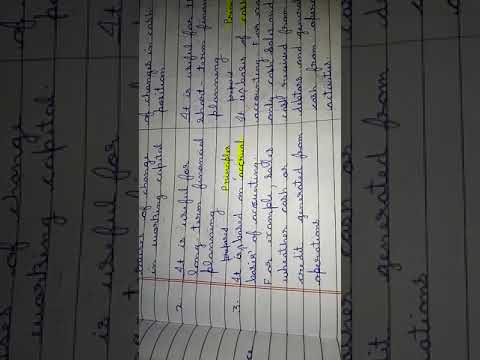 of change
in working capital
2. It is useful for
long term financial
planning
Principles
3. It is based on accrual
basis of accounting.
For example, sales
whether cash or
credit generated from
operations
of changes in cash
position.
It is useful for
short term
planning
It is basis of cash
accounting For
only cash sales and
cash received from
debtors and
cash from
activities